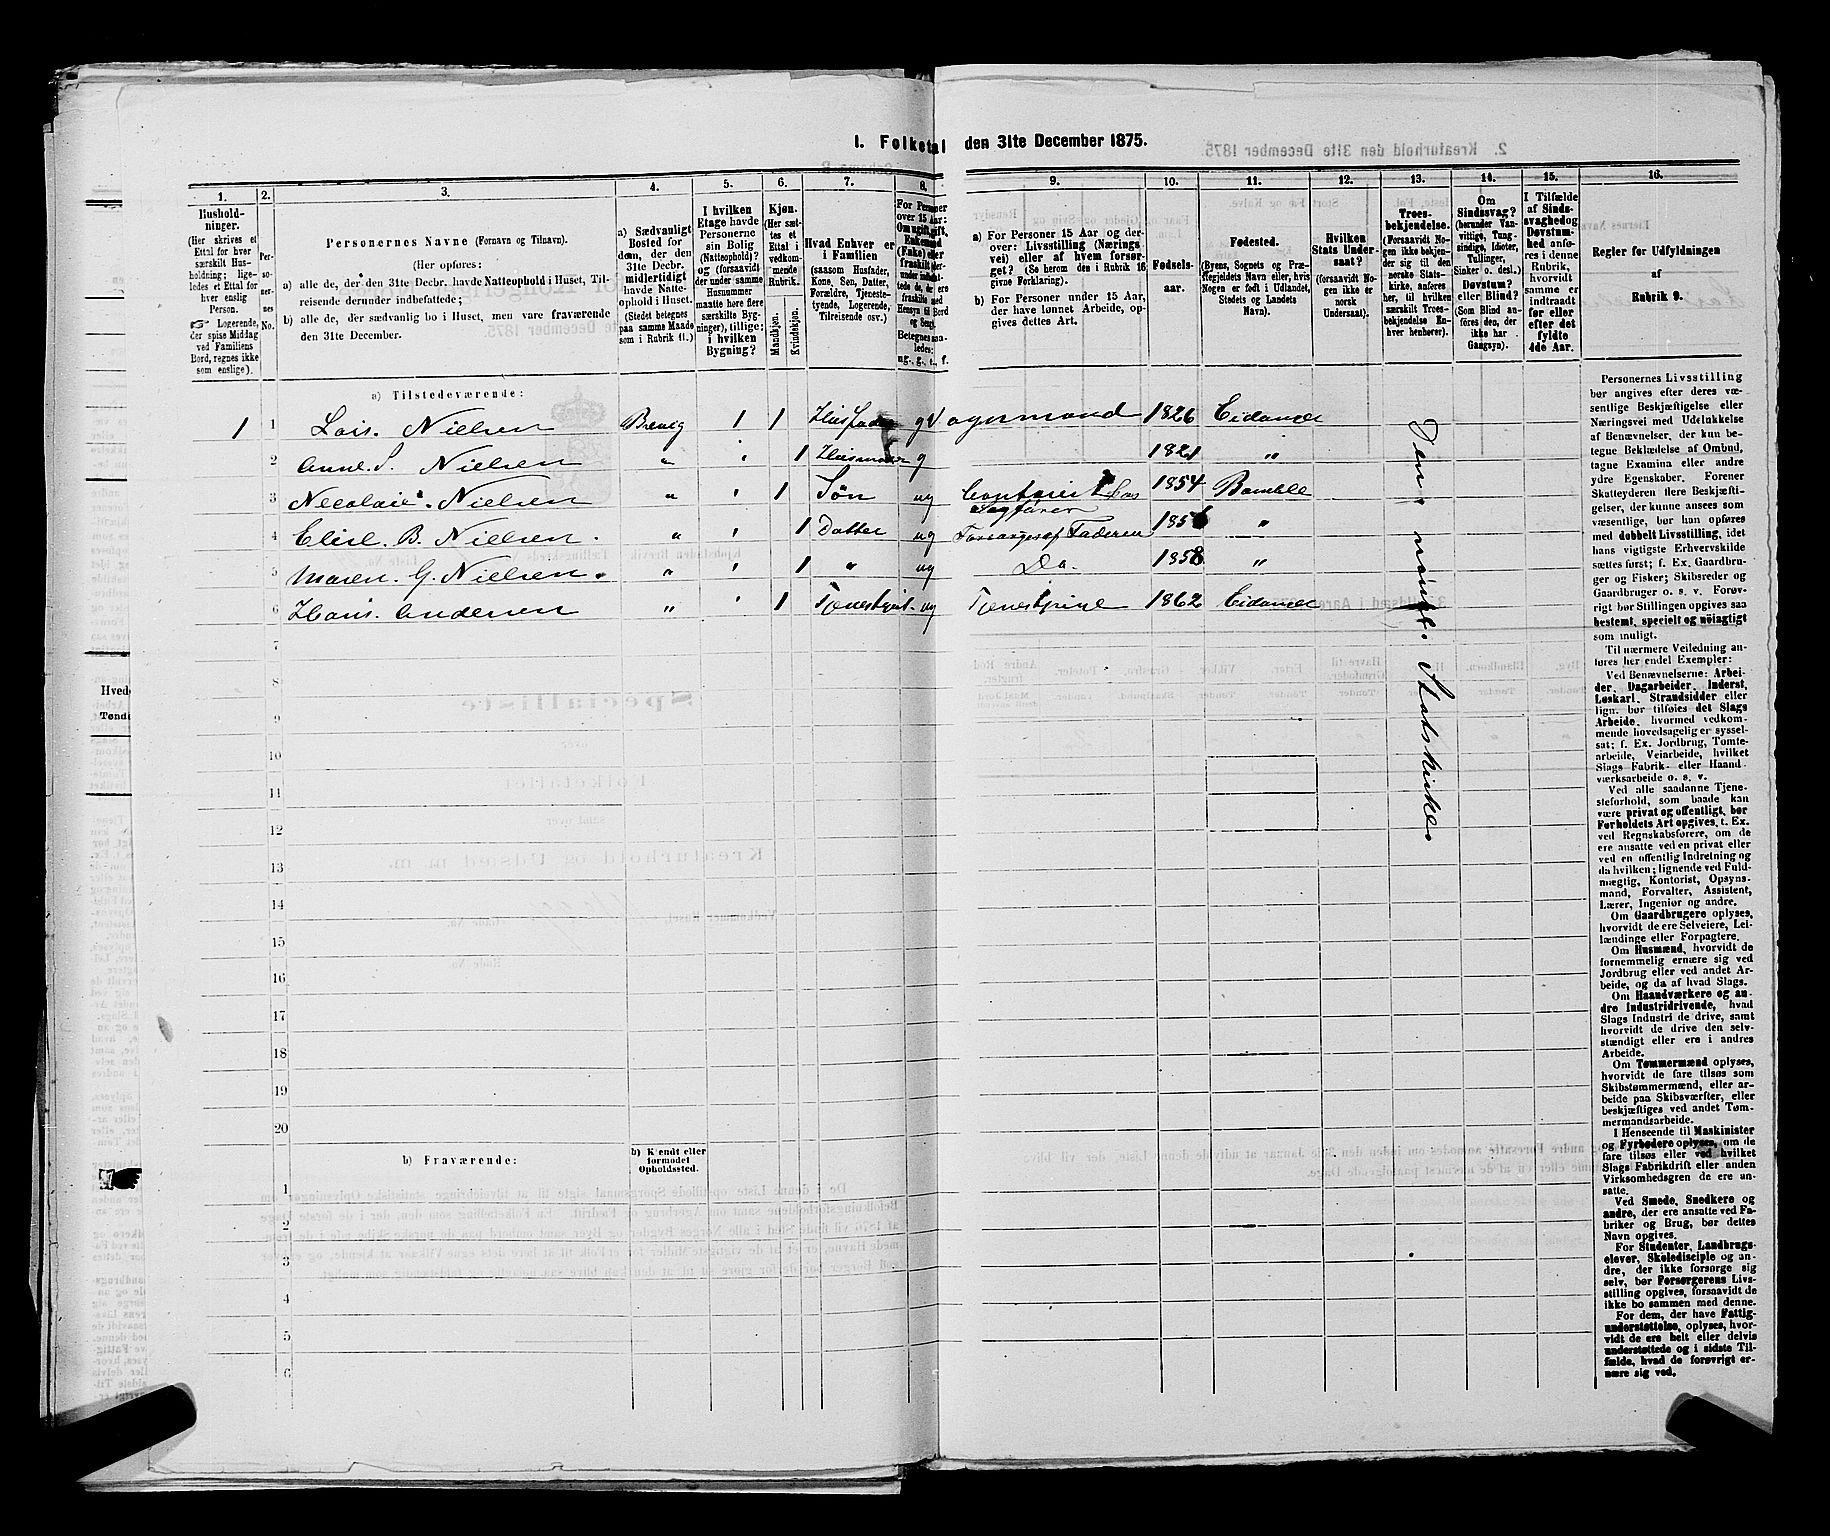 1. Folketal den 31te December 1875.
1. 2. 3. 4. 5. 6. 7. 8. 9. 10. 11. 12. 13. 14. 15. 16.
Hushold-
ninger.
(Her skrives et
Ettal for hver
særskilt Hus-
holdning; lige-
ledes et Ettal for
hver enslig
Person.
☞ Logerende,
der spise Middag
ved Familiens
Bord, regnes ikke
som enslige).
Per-
so-
ner-
nes
No.
Personernes Navne (Fornavn og Tilnavn).
(Her opføres:
a) alle de, der den 31te Decbr. havde Natteophold i Huset, Til-
reisende derunder indbefattede;
b) alle de, der sædvanlig bo i Huset, men vare fraværende
den 31te December.
a) Sædvanligt
Bosted for
dem, der den
31te Decbr.
midlertidigt
havde Natte-
ophold i Huset.
(Stedet betegnes
paa samme Maade
som i Rubrik 11.)
I hvilken
Etage havde
Personerne
sin Bolig
(Natteophold)?
og (forsaavidt
der under samme
Husnummer
maatte høre flere
særskilte Byg-
ninger), tillige:
i hvilken
Bygning?
Kjøn.
(Her sæt-
tes et
Ettal i
vedkom-
mende
Rubrik.)
Mandkjøn.
Kvindekjøn.
Hvad Enhver er
i Familien
(saasom Husfader,
Kone, Søn, Datter,
Forældre, Tjeneste-
tyende, Logerende,
Tilreisende osv.)
For Personer
over 15 Aar:
Om ugift, gift,
Enkemand
(Enke) eller
fraskilt
Betegnes saa-
ledes:
ug., g., e., f.
a) For Personer 15 Aar og der-
over: Livsstilling (Nærings-
vei) eller af hvem forsør-
get? (Se herom den i Rubrik 16
givne Forklaring.)
b) For Personer under 15 Aar,
der have lønnet Arbeide, op-
gives dettes Art.
Fødsels-
aar.
Fødested.
(Byens, Sognets og Præ-
stegjeldets Navn eller, hvis
Nogen er født i Udlandet,
Stedets og Landets
Navn).
Hvilken
Stats Under-
saat?
(forsaavidt No-
gen ikke er
norsk
Undersaat).
Troes-
bekjendelse.
(Forsaavidt No-
gen ikke bekjen-
der sig til den
norske Stats-
kirke, anføres
her, til hvilken
særskilt Troes-
bekjendelse En-
hver henhører).
Om
Sindssvag?
(herunder Van-
vittige, Tung-
sindige, Idioter,
Tullinger,
Sinker o. desl.)
Døvstum?
eller Blind?
(Som Blind an-
føres den, der
ikke har
Gangsyn).
I Tilfælde
af Sinds-
svaghed og
Døvstum-
hed anfø-
res i denne
Rubrik,
hvorvidt
samme er
indtraadt
før eller
efter det
fyldte
4de Aar.
Regler for Udfyldningen
af
Rubrik 9.
a) Tilstedeværende:
1 1 Lars. Nielsen Brevig 1 1 Husfader g Vognmand 1826 Eidanger
2 Anne. S. Nielsen " " 1 Husmoder g 1821 "
3 Nicolai Nielsen " " 1 Søn ug 1854 Bamble
Sagfører
4 Elise. B. Nielsen. " " 1 Datter ug Forsørges af Faderen "
5 Maren. G. Nielsen. " " 1 " ug Do. 1858 "
6 Hans. Andersen " " 1 ug 1862 Eidanger
Den norske Statskirke
7
8
9
10
11
12
13
14
15
16
17
18
19
20
b) Fraværende:
b) Kjendt eller
formodet
Opholdssted.
1
2
3
4
5
6
Personernes Livsstilling
bør angives efter deres væ-
sentlige Beskjæftigelse eller
Næringsvei med Udelukkelse
af Benævnelser, der kun be-
tegne Beklædelse af Ombud,
tagne Examina eller andre
ydre Egenskaber. Forener
Skatteyderen flere Beskjæfti-
gelser, der kunne ansees som
væsentlige, bør han opføres
med dobbelt Livsstilling, idet
hans vigtigste Erhvervskilde
sættes først; f. Ex. Gaardbru-
ger og Fisker; Skibsreder og
Gaardbruger o. s. v. Forøv-
rigt bør Stillingen opgives saa
bestemt, specielt og nøiagtigt
som muligt.
Til nærmere Veiledning an-
føres her endel Exempler:
Ved Benævnelserne: Arbei-
der, Dagarbeider, Inderst,
Løskarl, Strandsidder eller
lign. bør tilføies det Slags
Arbeide, hvormed vedkom-
mende hovedsagelig er syssel-
sat; f. Ex. Jordbrug, Tomte-
arbeide, Veiarbeide, hvilket
Slags Fabrik- eller Haand-
værksarbeide o. s. v.
Ved alle saadanne Tjene-
steforhold, som baade kan
være privat og offentligt, bør
Forholdets Art opgives, t. Ex.
ved Regnskabsførere, om de
ere ansatte ved en privat eller
ved en offentlig Indretning og
da hvilken; lignende ved Fuld-
mægtig, Kontorist, Opsyns-
mand, Forvalter, Assistent,
Lærer, Ingeniør og andre.
Om Gaardbrugere oplyses,
hvorvidt de ere Selveiere, Lei-
lændinge eller Forpagtere.
Om Husmænd, hvorvidt de
fornemmelig ernære sig ved
Jordbrug eller ved andet Ar-
beide, og da af hvad Slags.
Om Haandværkere og an-
dre Industridrivende, hvad
Slags Industri de drive, samt
hvorvidt de drive den selv-
stændigt eller ere i andres
Arbeide.
Om Tømmermænd oplyses,
hvorvidt de fare tilsøs som
Skibstømmermænd, eller ar-
beide paa Skibsværfter, eller
beskjæftiges ved andet Tøm-
mermandsarbeide.
I Henseende til Maskinister
og Fyrbødere oplyses, om de
fare tilsøs eller ved hvilket
Slags Fabrikdrift eller anden
Virksomhedsgren de ere an-
satte.
Ved Smede, Snedkere og
andre, der ere ansatte ved Fa-
briker og Brug, bør dettes
Navn opgives.
For Studenter, Landbrugs-
elever, Skoledisciple og an-
dre, der ikke forsørge sig
selv, bør Forsørgerens Livs-
stilling opgives, forsaavidt de
ikke bo sammen med denne.
For dem, der have Fattig-
understøttelse, oplyses, hvor-
vidt de ere helt eller delvis
understøttede og i sidste Til-
fælde, hvad de forøvrigt er-
nære sig ved.